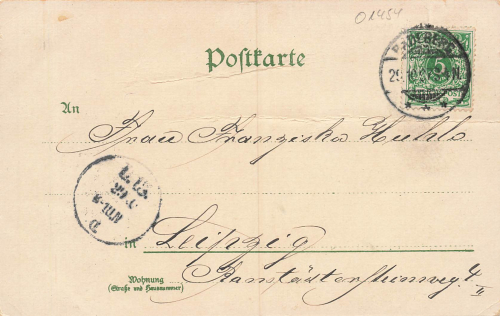 01454
Postkarte
RADEBERG
5
An
Frau Franziska Huhle
in Leipzig
Wohnung
(Straße und Hausnummer)
Ranstädtersteinweg. 4
II